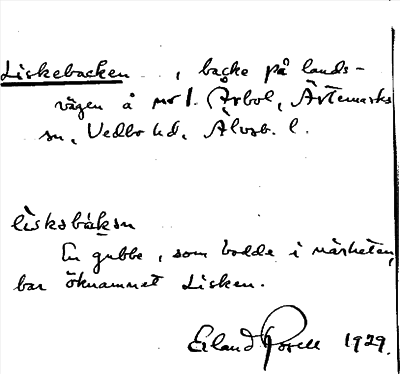 Liskebacken . . , backe på lands-
vägen å nr 1. Årbol, Ärtemarks
sn, Vedbo hd, Älvsb. l.
lìskəbákən
En gubbe, som bodde i närheten,
bar öknamnet Lisken.
Erland 1929.